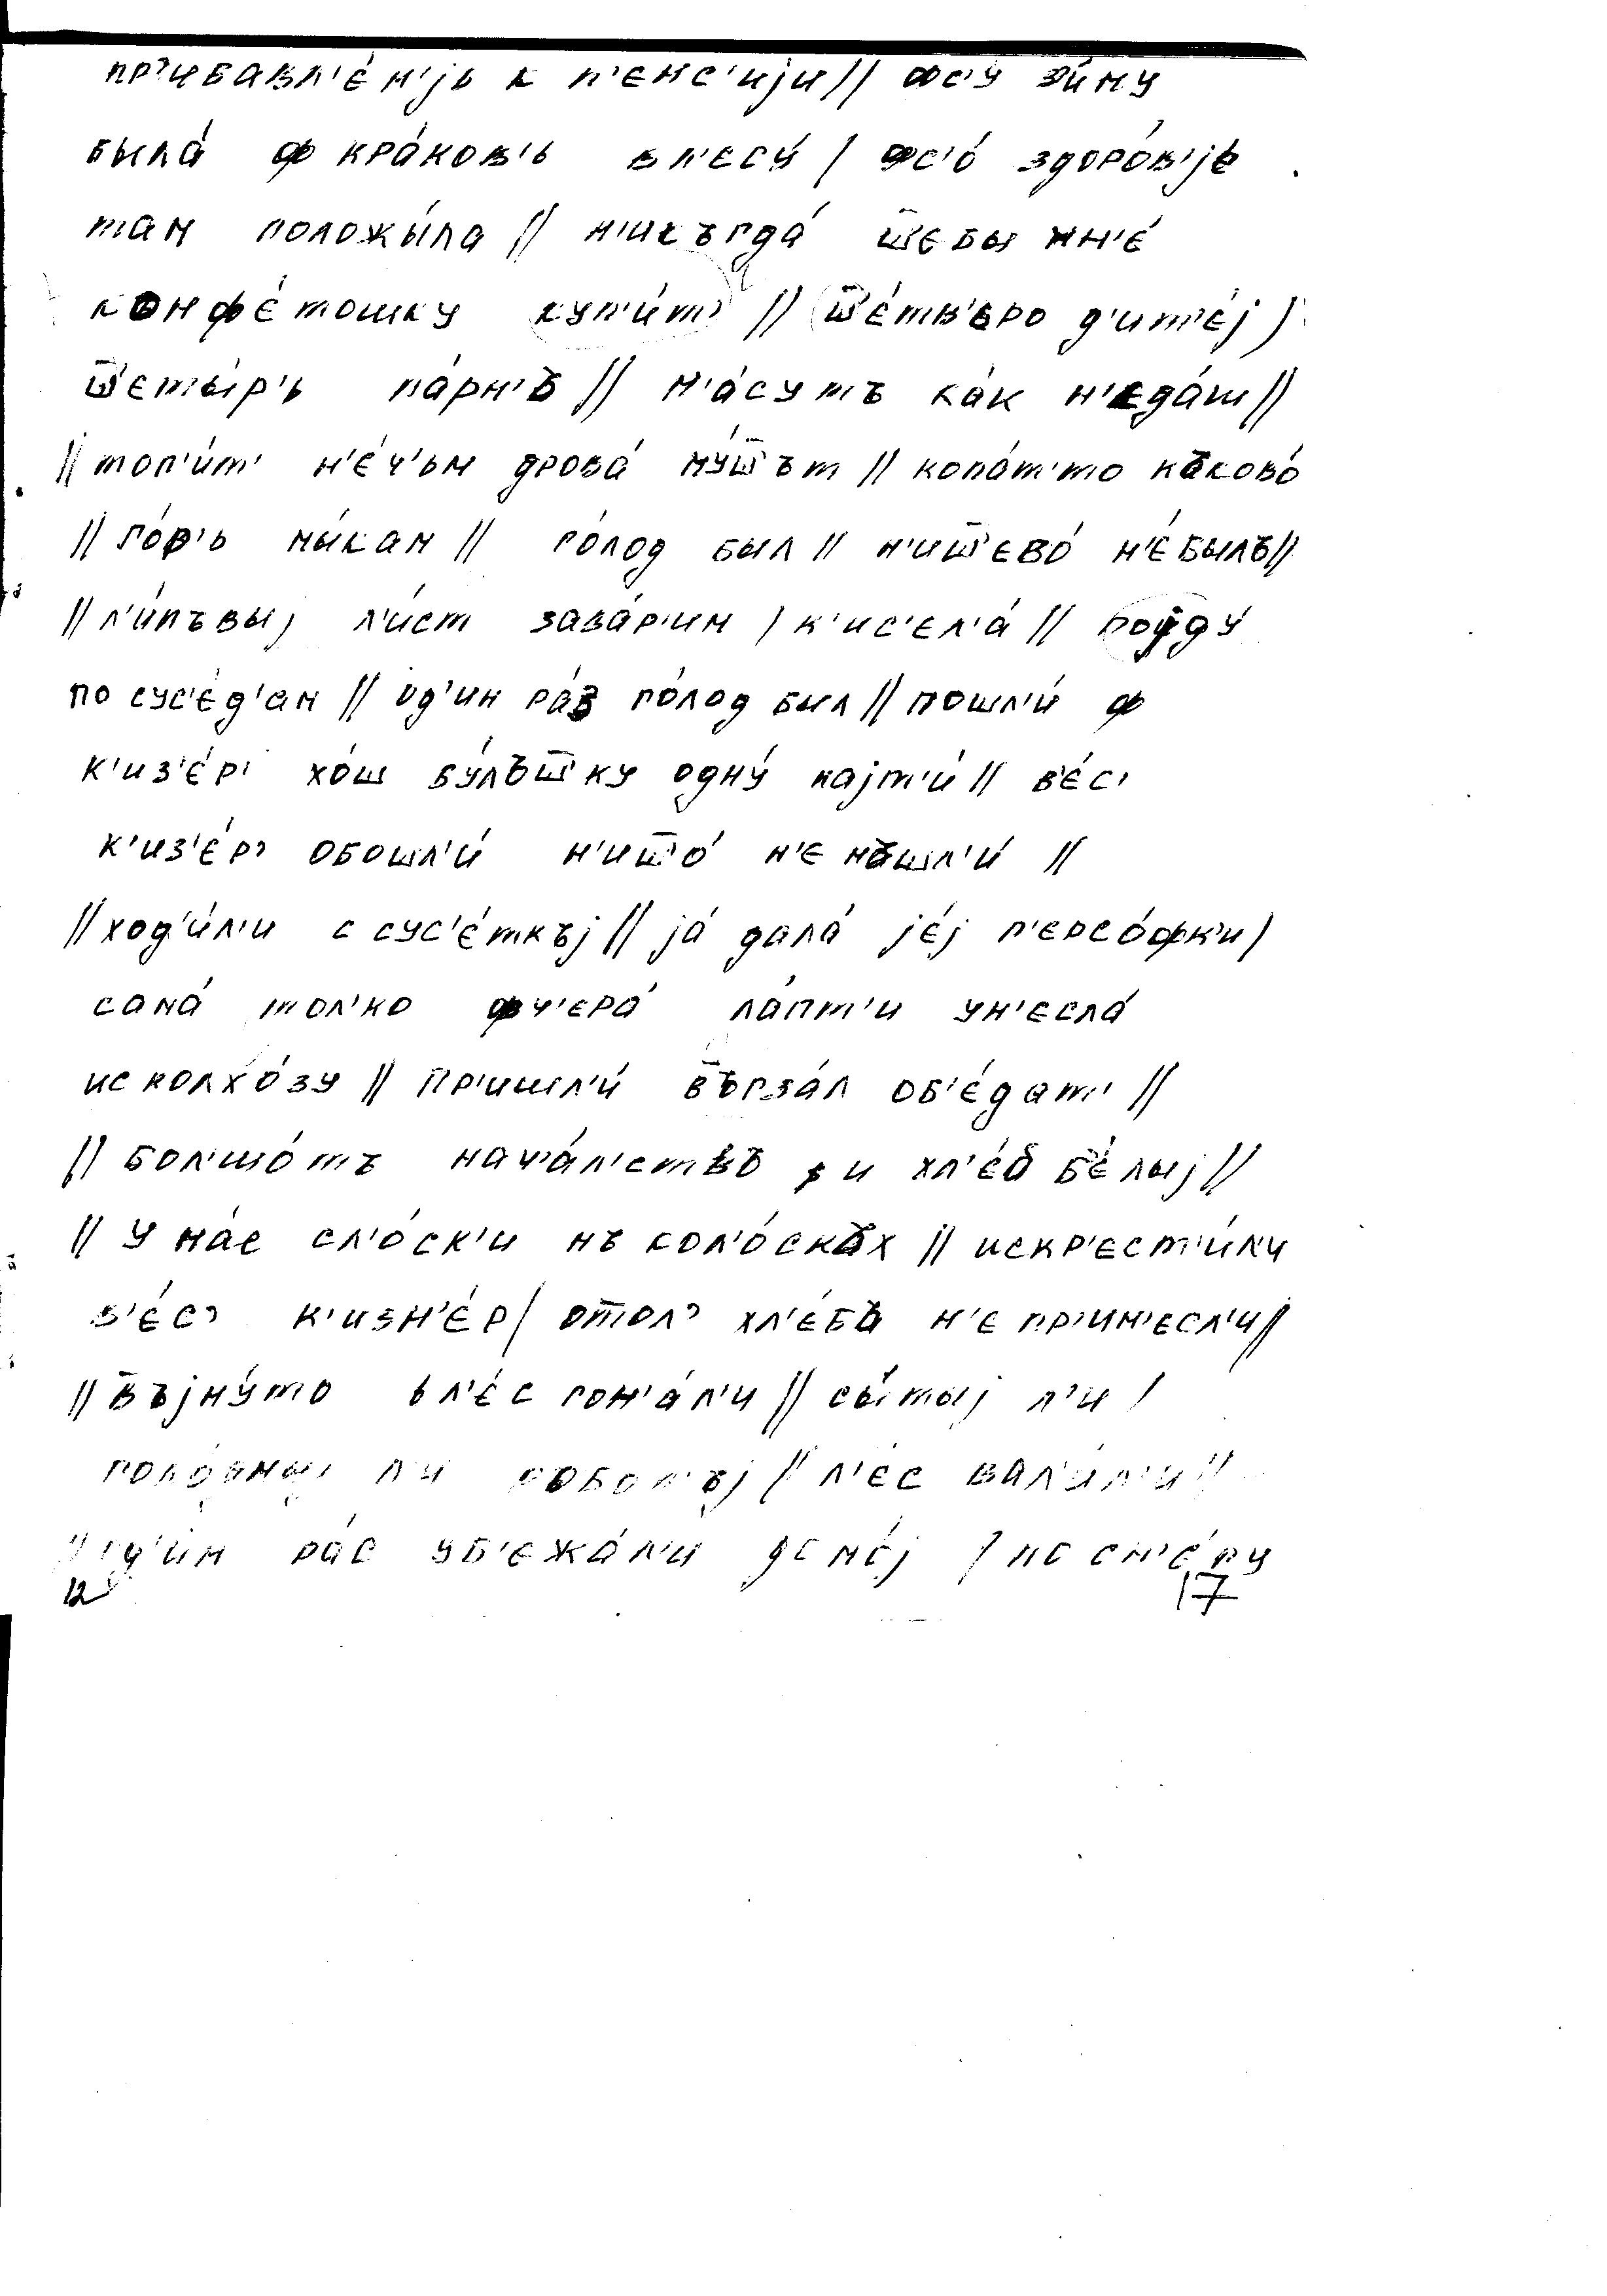 пр'ибавл'е́н'јь к п'енс'ијиǁ фс'у́ зи́му
была́ ф кра́ков'ь вл'есу́ / фс'о́ здоро́в'јь
там положы́ла // н'икъгда́ ш͞ебы мн'е́
конфе́тошку куп'и́т' // ш͞е́тв'еро д'ит'е́ј /
ш͞еты́р'ь па́рн'ъ // м'а́сутъ ка́к н'еда́ш //
// топ'и́т' н'е́ч'ьм дрова́ му́ш͞ът // копа́т'то каково́
// го́р'ь мы́кам // го́лод был // н'иш͞ево́ н'е́былъ //
// л'и́пъвыј л'и́ст зава́р'им / к'ис'ел'а́ // појду́
по сус'е́д'ам // од'ин ра́з го́лод был // пошл'и́ ф
к'из'е́р' хо́ш бу́лъш͞ку одну́ најт'и́ // в'е́с'
к'из'е́р' обошл'и́ н'иш͞о́ н'е нашл'и́ //
// ход'и́л'и с сус'е́ткъј // ја́ дала́ је́ј п'ерсо́фк'и /
сама́ тол'ко фч'ера́ ла́пт'и ун'есла́
ис колхо́зу // Пр'ишл'и́ в͞ъгза́л об'е́дат' //
// бол'шо́тъ нач'а́л'ствъ и хл'е́б б'е́лыј //
// У на́с сл'о́ск'и нъ кол'о́сках // искр'ест'и́л'и
в'е́с' к'изн'е́р / отол' хл'е́ба н'е пр'ин'есл'и //
// в͞ъјну́то вл'е́с гон'а́л'и // сы́тыј л'и /
голо́дныј л'и робо́тъј // л'е́с вал'и́л'и //
// од'и́н ра́с уб'ежа́л'и домо́ј / по сн'е́гу
12 17